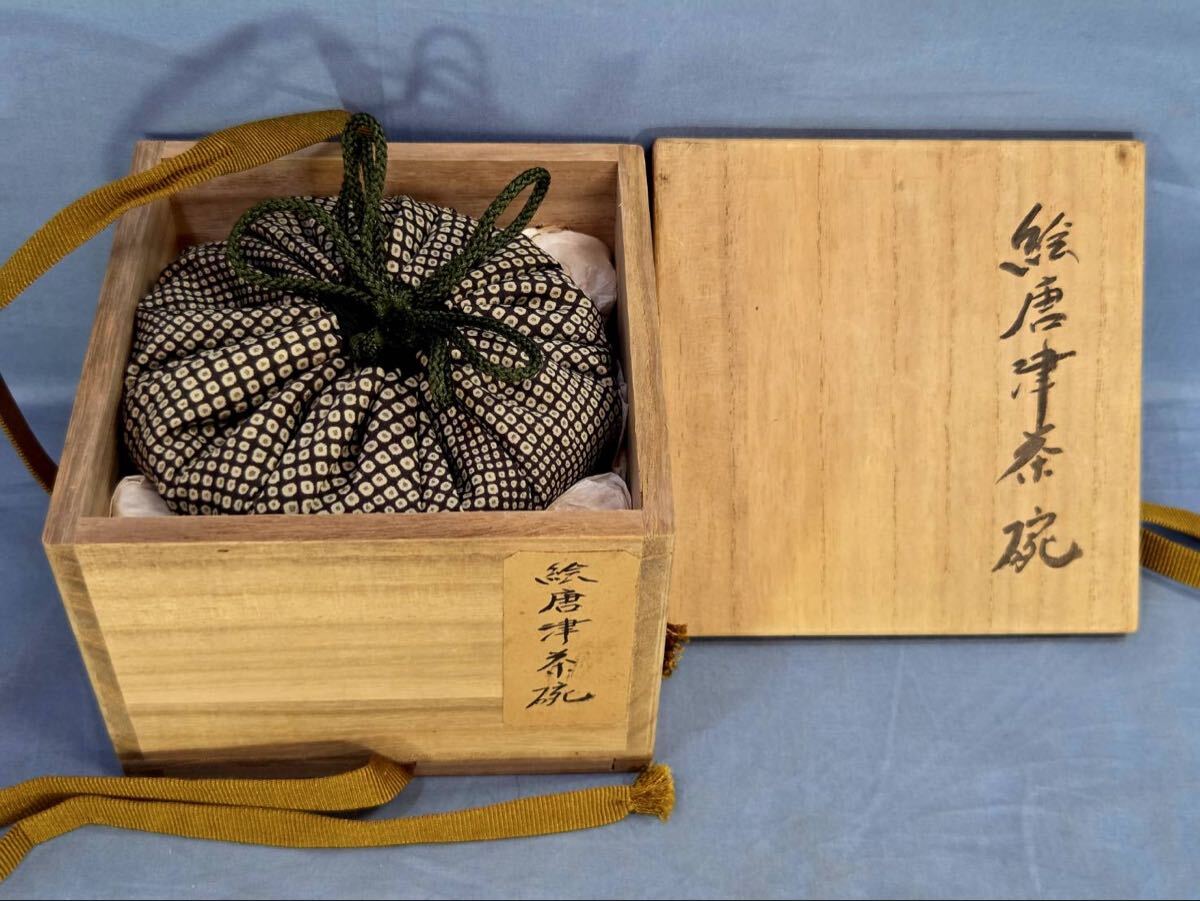 絵唐津茶碗
絵唐津茶碗